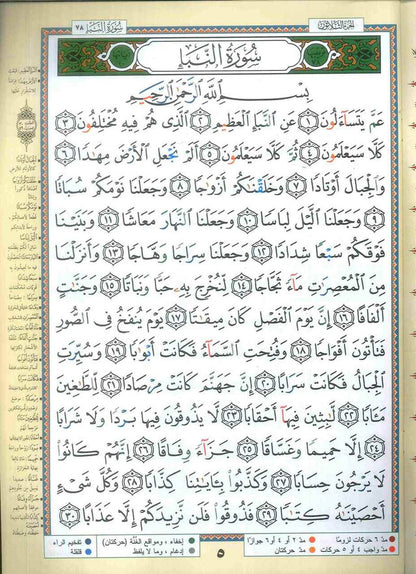 الجزء الثلاثون
سورة النبإ ٧٨
سُورَةُ النَّبَإِ
بِسْمِ اللَّهِ الرَّحْمَٰنِ الرَّحِيمِ
عَمَّ يَتَسَآءَلُونَ ١ عَنِ ٱلنَّبَإِ ٱلْعَظِيمِ ٢ ٱلَّذِى هُمْ فِيهِ مُخْتَلِفُونَ ٣
كَلَّا سَيَعْلَمُونَ ٤ ثُمَّ كَلَّا سَيَعْلَمُونَ ٥ أَلَمْ نَجْعَلِ ٱلْأَرْضَ مِهَٰدًا ٦
وَٱلْجِبَالَ أَوْتَادًا ٧ وَخَلَقْنَٰكُمْ أَزْوَٰجًا ٨ وَجَعَلْنَا نَوْمَكُمْ سُبَاتًا
٩ وَجَعَلْنَا ٱلَّيْلَ لِبَاسًا ١٠ وَجَعَلْنَا ٱلنَّهَارَ مَعَاشًا ١١ وَبَنَيْنَا
فَوْقَكُمْ سَبْعًا شِدَادًا ١٢ وَجَعَلْنَا سِرَاجًا وَهَّاجًا ١٣ وَأَنزَلْنَا
مِنَ ٱلْمُعْصِرَٰتِ مَآءً ثَجَّاجًا ١٤ لِّنُخْرِجَ بِهِۦ حَبًّا وَنَبَاتًا ١٥ وَجَنَّٰتٍ
أَلْفَافًا ١٦ إِنَّ يَوْمَ ٱلْفَصْلِ كَانَ مِيقَٰتًا ١٧ يَوْمَ يُنفَخُ فِى ٱلصُّورِ
فَتَأْتُونَ أَفْوَاجًا ١٨ وَفُتِحَتِ ٱلسَّمَآءُ فَكَانَتْ أَبْوَٰبًا ١٩ وَسُيِّرَتِ
ٱلْجِبَالُ فَكَانَتْ سَرَابًا ٢٠ إِنَّ جَهَنَّمَ كَانَتْ مِرْصَادًا ٢١ لِّلطَّٰغِينَ
مَـَٔابًا ٢٢ لَّٰبِثِينَ فِيهَآ أَحْقَابًا ٢٣ لَّا يَذُوقُونَ فِيهَا بَرْدًا وَلَا شَرَابًا
٢٤ إِلَّا حَمِيمًا وَغَسَّاقًا ٢٥ جَزَآءً وِفَاقًا ٢٦ إِنَّهُمْ كَانُوا۟
لَا يَرْجُونَ حِسَابًا ٢٧ وَكَذَّبُوا۟ بِـَٔايَٰتِنَا كِذَّابًا ٢٨ وَكُلَّ شَىْءٍ
أَحْصَيْنَٰهُ كِتَٰبًا ٢٩ فَذُوقُوا۟ فَلَن نَّزِيدَكُمْ إِلَّا عَذَابًا ٣٠
مدّ ٦ حركات لزوماً مدّ ٢ أو ٤ أو ٦ جوازاً إخفاء، ومواقع الغُنَّة (حركتان) تفخيم الراء
مدّ واجب ٤ أو ٥ حركات مدّ حركتان إدغام، وما لا يُلفظ قلقلة
٥